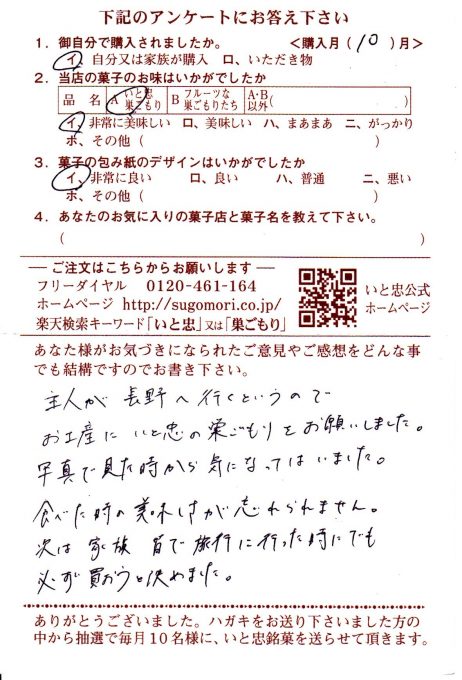 下記のアンケートにお答え下さい
1. 御自分で購入されましたか。 <購入月(10)月>
イ、自分又は家族が購入 ロ、いただき物
2. 当店の菓子のお味はいかがでしたか
品 名 A いと忠巣ごもり B フルーツな巣ごもりたち A・B以外( )
イ、非常に美味しい ロ、美味しい ハ、まあまあ ニ、がっかり
ホ、その他(
3. 菓子の包み紙のデザインはいかがでしたか
イ、非常に良い ロ、良い ハ、普通 ニ、悪い
ホ、その他(
4. あなたのお気に入りの菓子店と菓子名を教えて下さい。
( )
― ご注文はこちらからお願いします ―
フリーダイヤル 0120-461-164
ホームページ http://sugomori.co.jp/
楽天検索キーワード「いと忠」又は「巣ごもり」
いと忠公式
ホームページ
あなた様がお気づきになられたご意見やご感想をどんな事
でも結構ですのでお書き下さい。
主人が 長野へ行くというので
お土産に いと忠の巣ごもりをお願いしました。
写真で見た時から気になってはいました。
食べた時の美味しさが忘れられません。
次は 家族 皆で旅行に行った時にでも
必ず買おうと決めました。
ありがとうございました。ハガキをお送り下さいました方の
中から抽選で毎月10名様に、いと忠銘菓を送らせて頂きます。